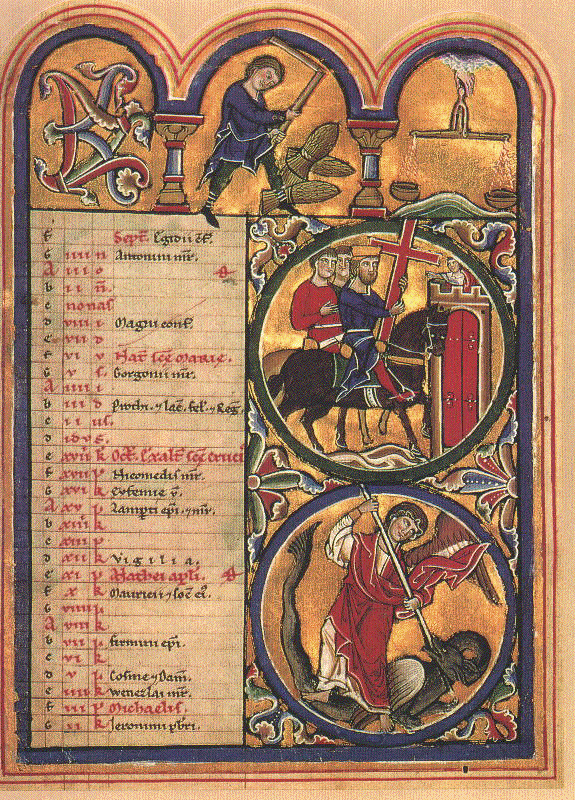 KL
f Sept. Egidii
G iiii n Antonini mr.
A iii o
b ii n.
c nonas
d viii i Magni conf.
e vii d
f vi v Nat. sce Marie.
G v s. Gorgonii mr.
A iiii i
b iii d Prothi. ⁊ Iac.
c ii us.
d idvs.
e xviii k Oct. Exalt. sce cruci
f xvii p Nicomedis mr.
G xvi k Eufemie v.
A xv p Lampti epi. ⁊ mr.
b xiiii k
c xiii p
d xii k vigilia.
e xi p Mathei apli.
f x k Mauricii ⁊ soc. e.
G viiii p
A viii k
b vii p firmini epi.
c vi k
d v p Cosme ⁊ Dam.
e iiii k Wenezlai mr.
f iii p Michaelis.
G ii k Jeronimi pbri.